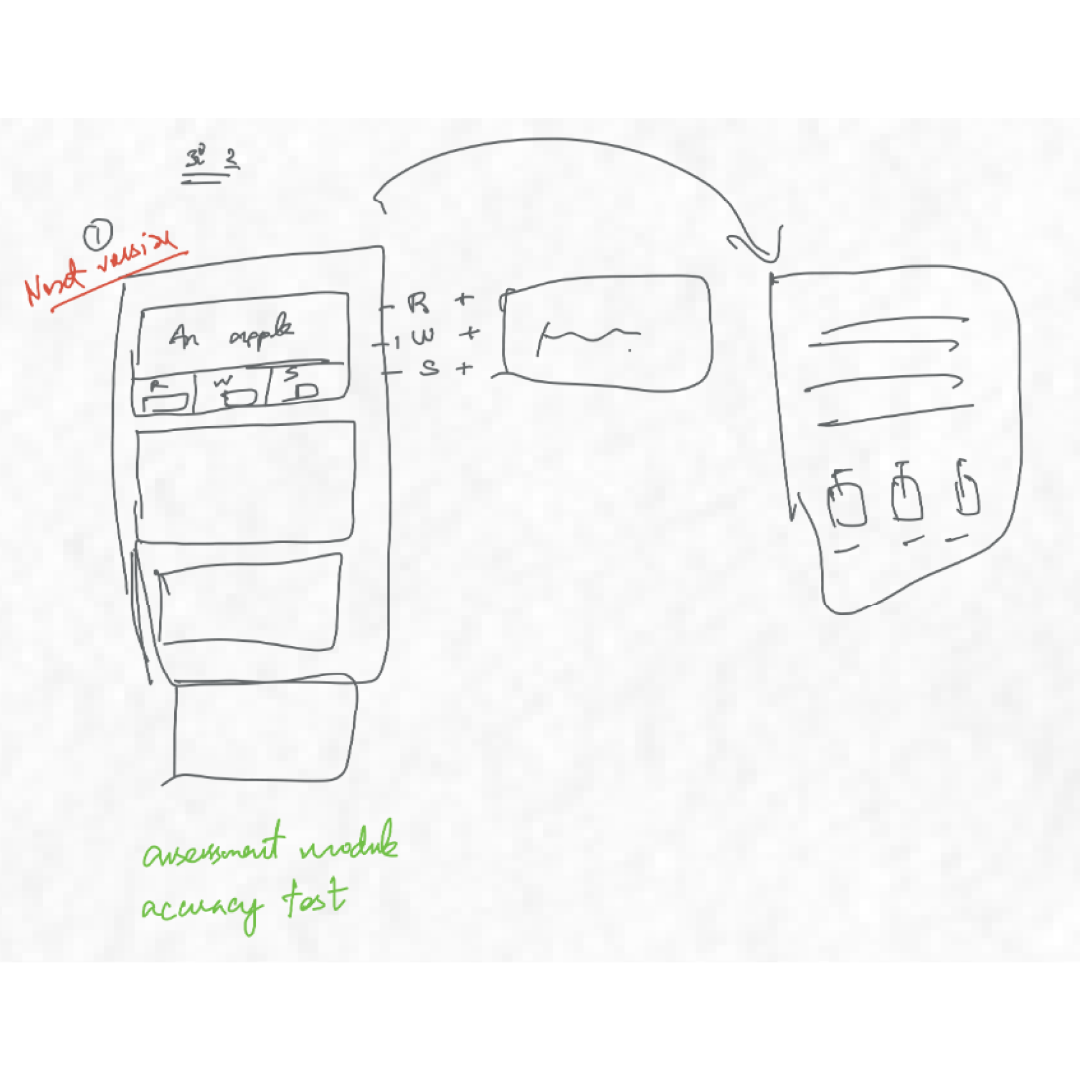 ①
Next version
An apple
R W S
R +
W +
S +
assessment module
accuracy test